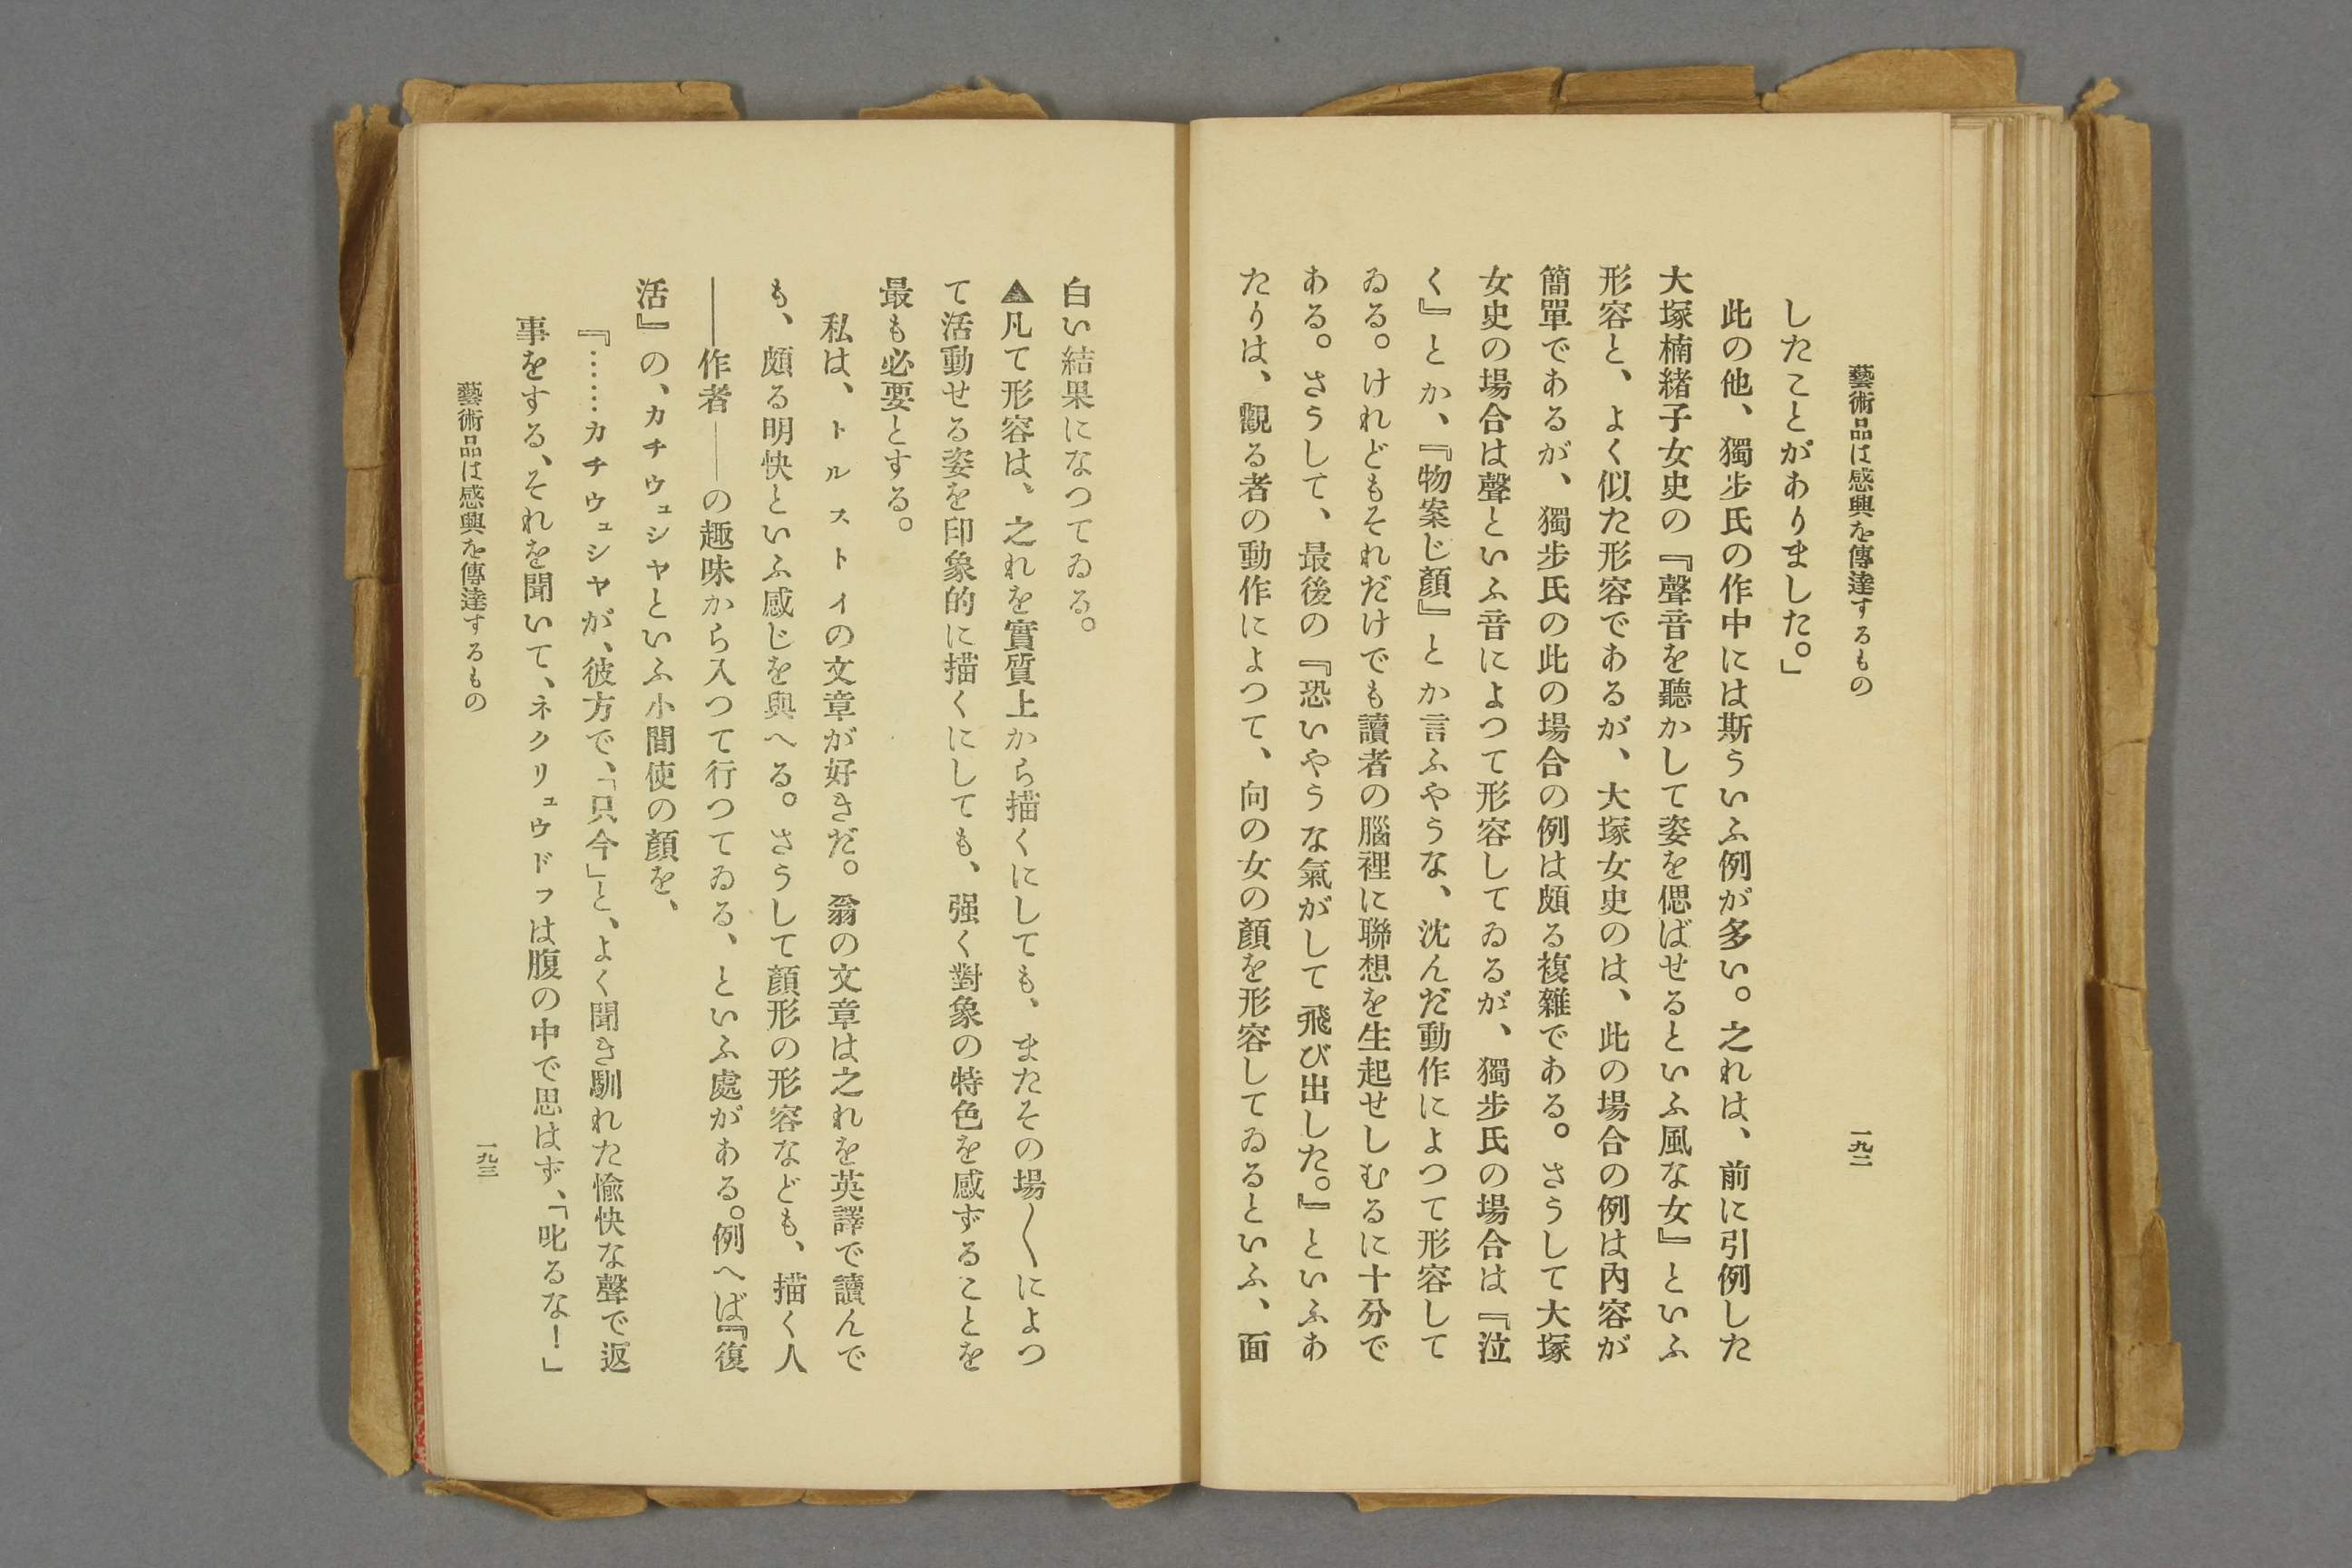 藝術品は感興を傳達するもの
一九二
したことがありました。」
此の他、獨步氏の作中には斯ういふ例が多い。之れは、前に引例した
大塚楠緒子女史の『聲音を聽かして姿を偲ばせるといふ風な女』といふ
形容と、よく似た形容であるが、大塚女史のは、此の場合の例は內容が
簡單であるが、獨步氏の此の場合の例は頗る複雜である。さうして大塚
女史の場合は聲といふ音によつて形容してゐるが、獨步氏の場合は『泣
く』とか、『物案じ顏』とか言ふやうな、沈んだ動作によつて形容して
ゐる。けれどもそれだけでも讀者の腦裡に聯想を生起せしむるに十分で
ある。さうして、最後の『恐いやうな氣がして飛び出した。』といふあ
たりは、觀る者の動作によつて、向の女の顏を形容してゐるといふ、面
白い結果になつてゐる。
▲凡て形容は、之れを實質上から描くにしても、またその場〱によつ
て活動せる姿を印象的に描くにしても、强く對象の特色を感ずることを
最も必要とする。
私は、トルストイの文章が好きだ。翁の文章は之れを英譯で讀んで
も、頗る明快といふ感じを與へる。さうして顏形の形容なども、描く人
――作者――の趣味から入つて行つてゐる、といふ處がある。例へば『復
活』の、カチウュシヤといふ小間使の顏を、
『……カチウュシヤが、彼方で、「只今」と、よく聞き馴れた愉快な聲で返
事をする、それを聞いて、ネクリュウドフは腹の中で思はず、「叱るな！」
藝術品は感興を傳達するもの
一九三